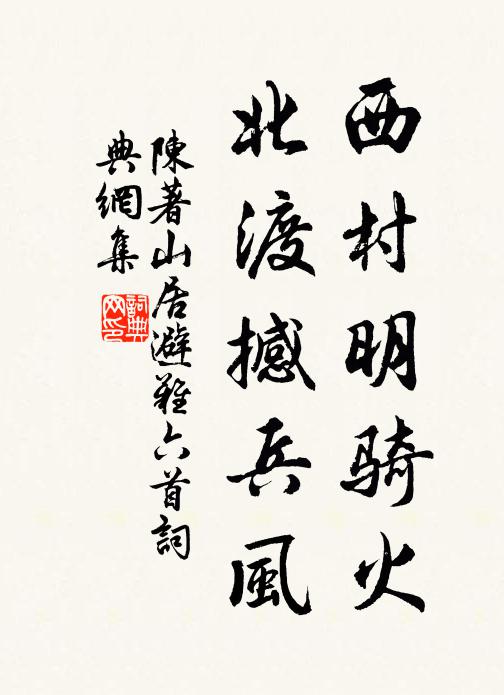 西村明騎火
北渡撼兵風
陳著山居避難六首詞
典網集
詞典
网印